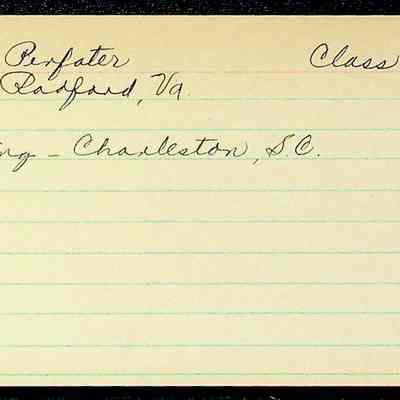 Perfater Class
Radford, Va.
ing - Charleston, S.C.